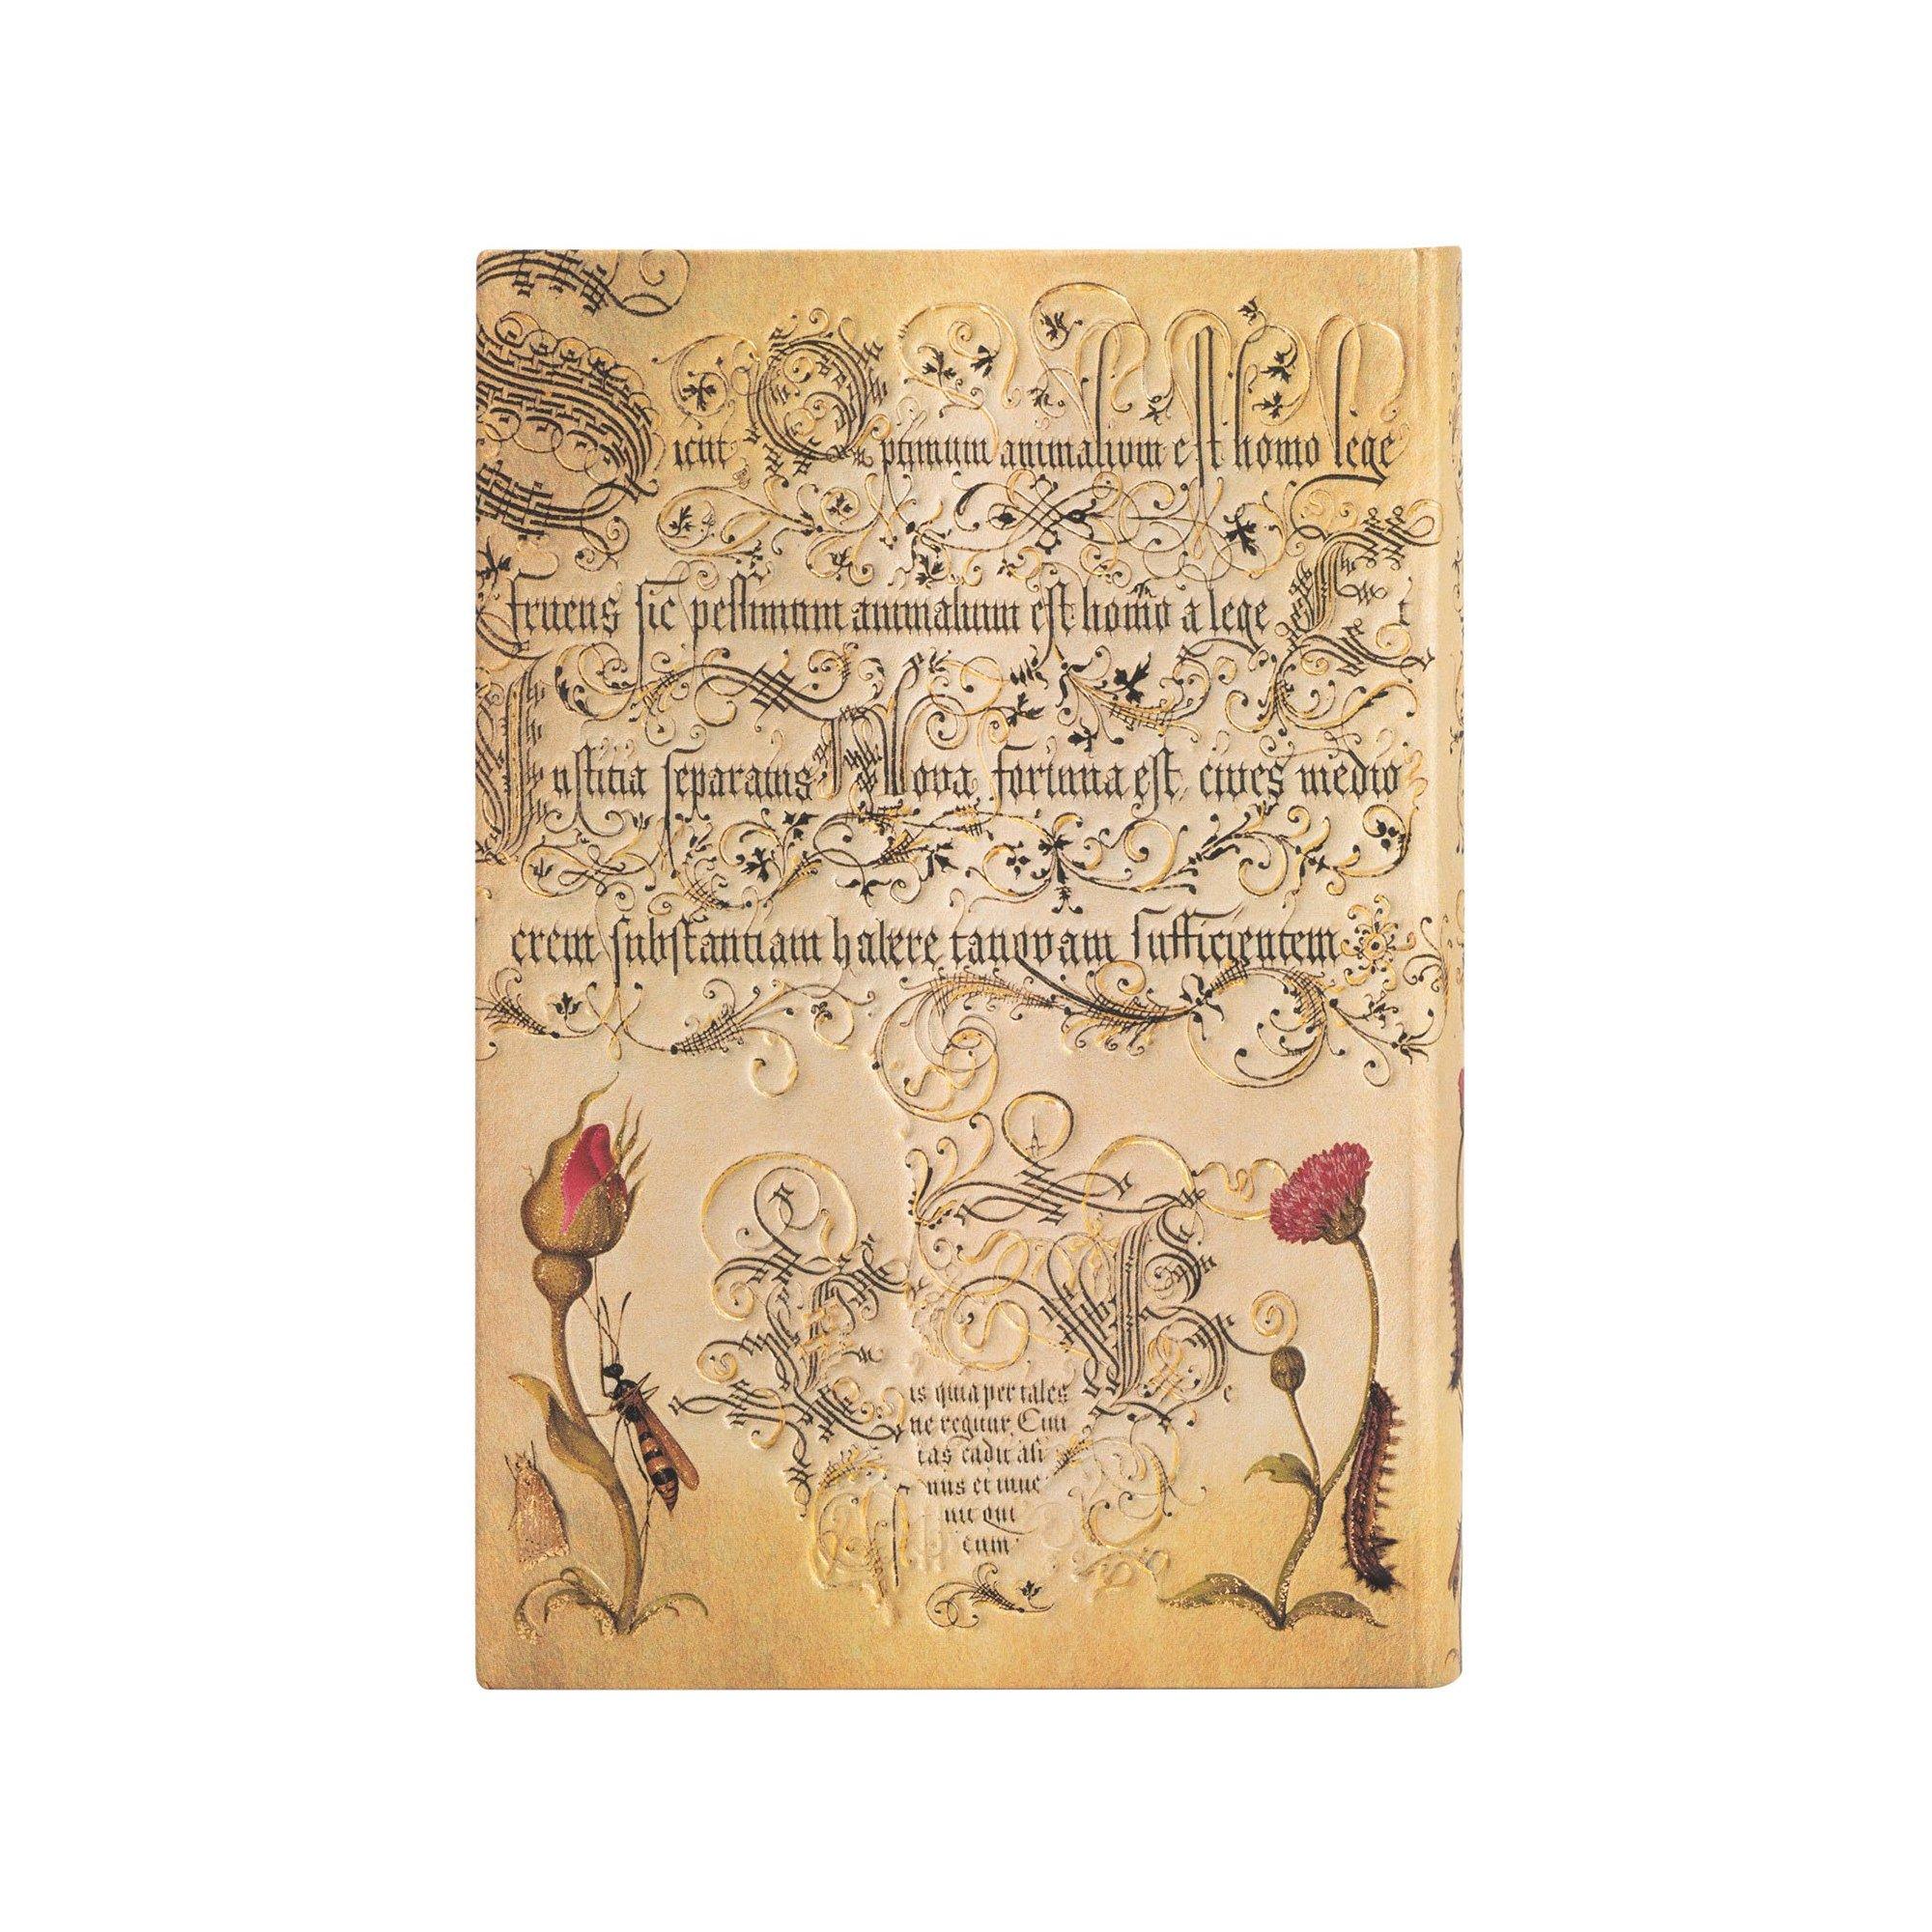 Sicut Optimum animalium est homo lege
fruens sic pessimum animalium est homo a lege Et
Iustitia separatus Nova fortuna est cives medio
crem substantiam habere tanquam sufficientem
is quia per tales Be
ne regitur Civi
tas cadit ali
nus et inue
nit qui
cum